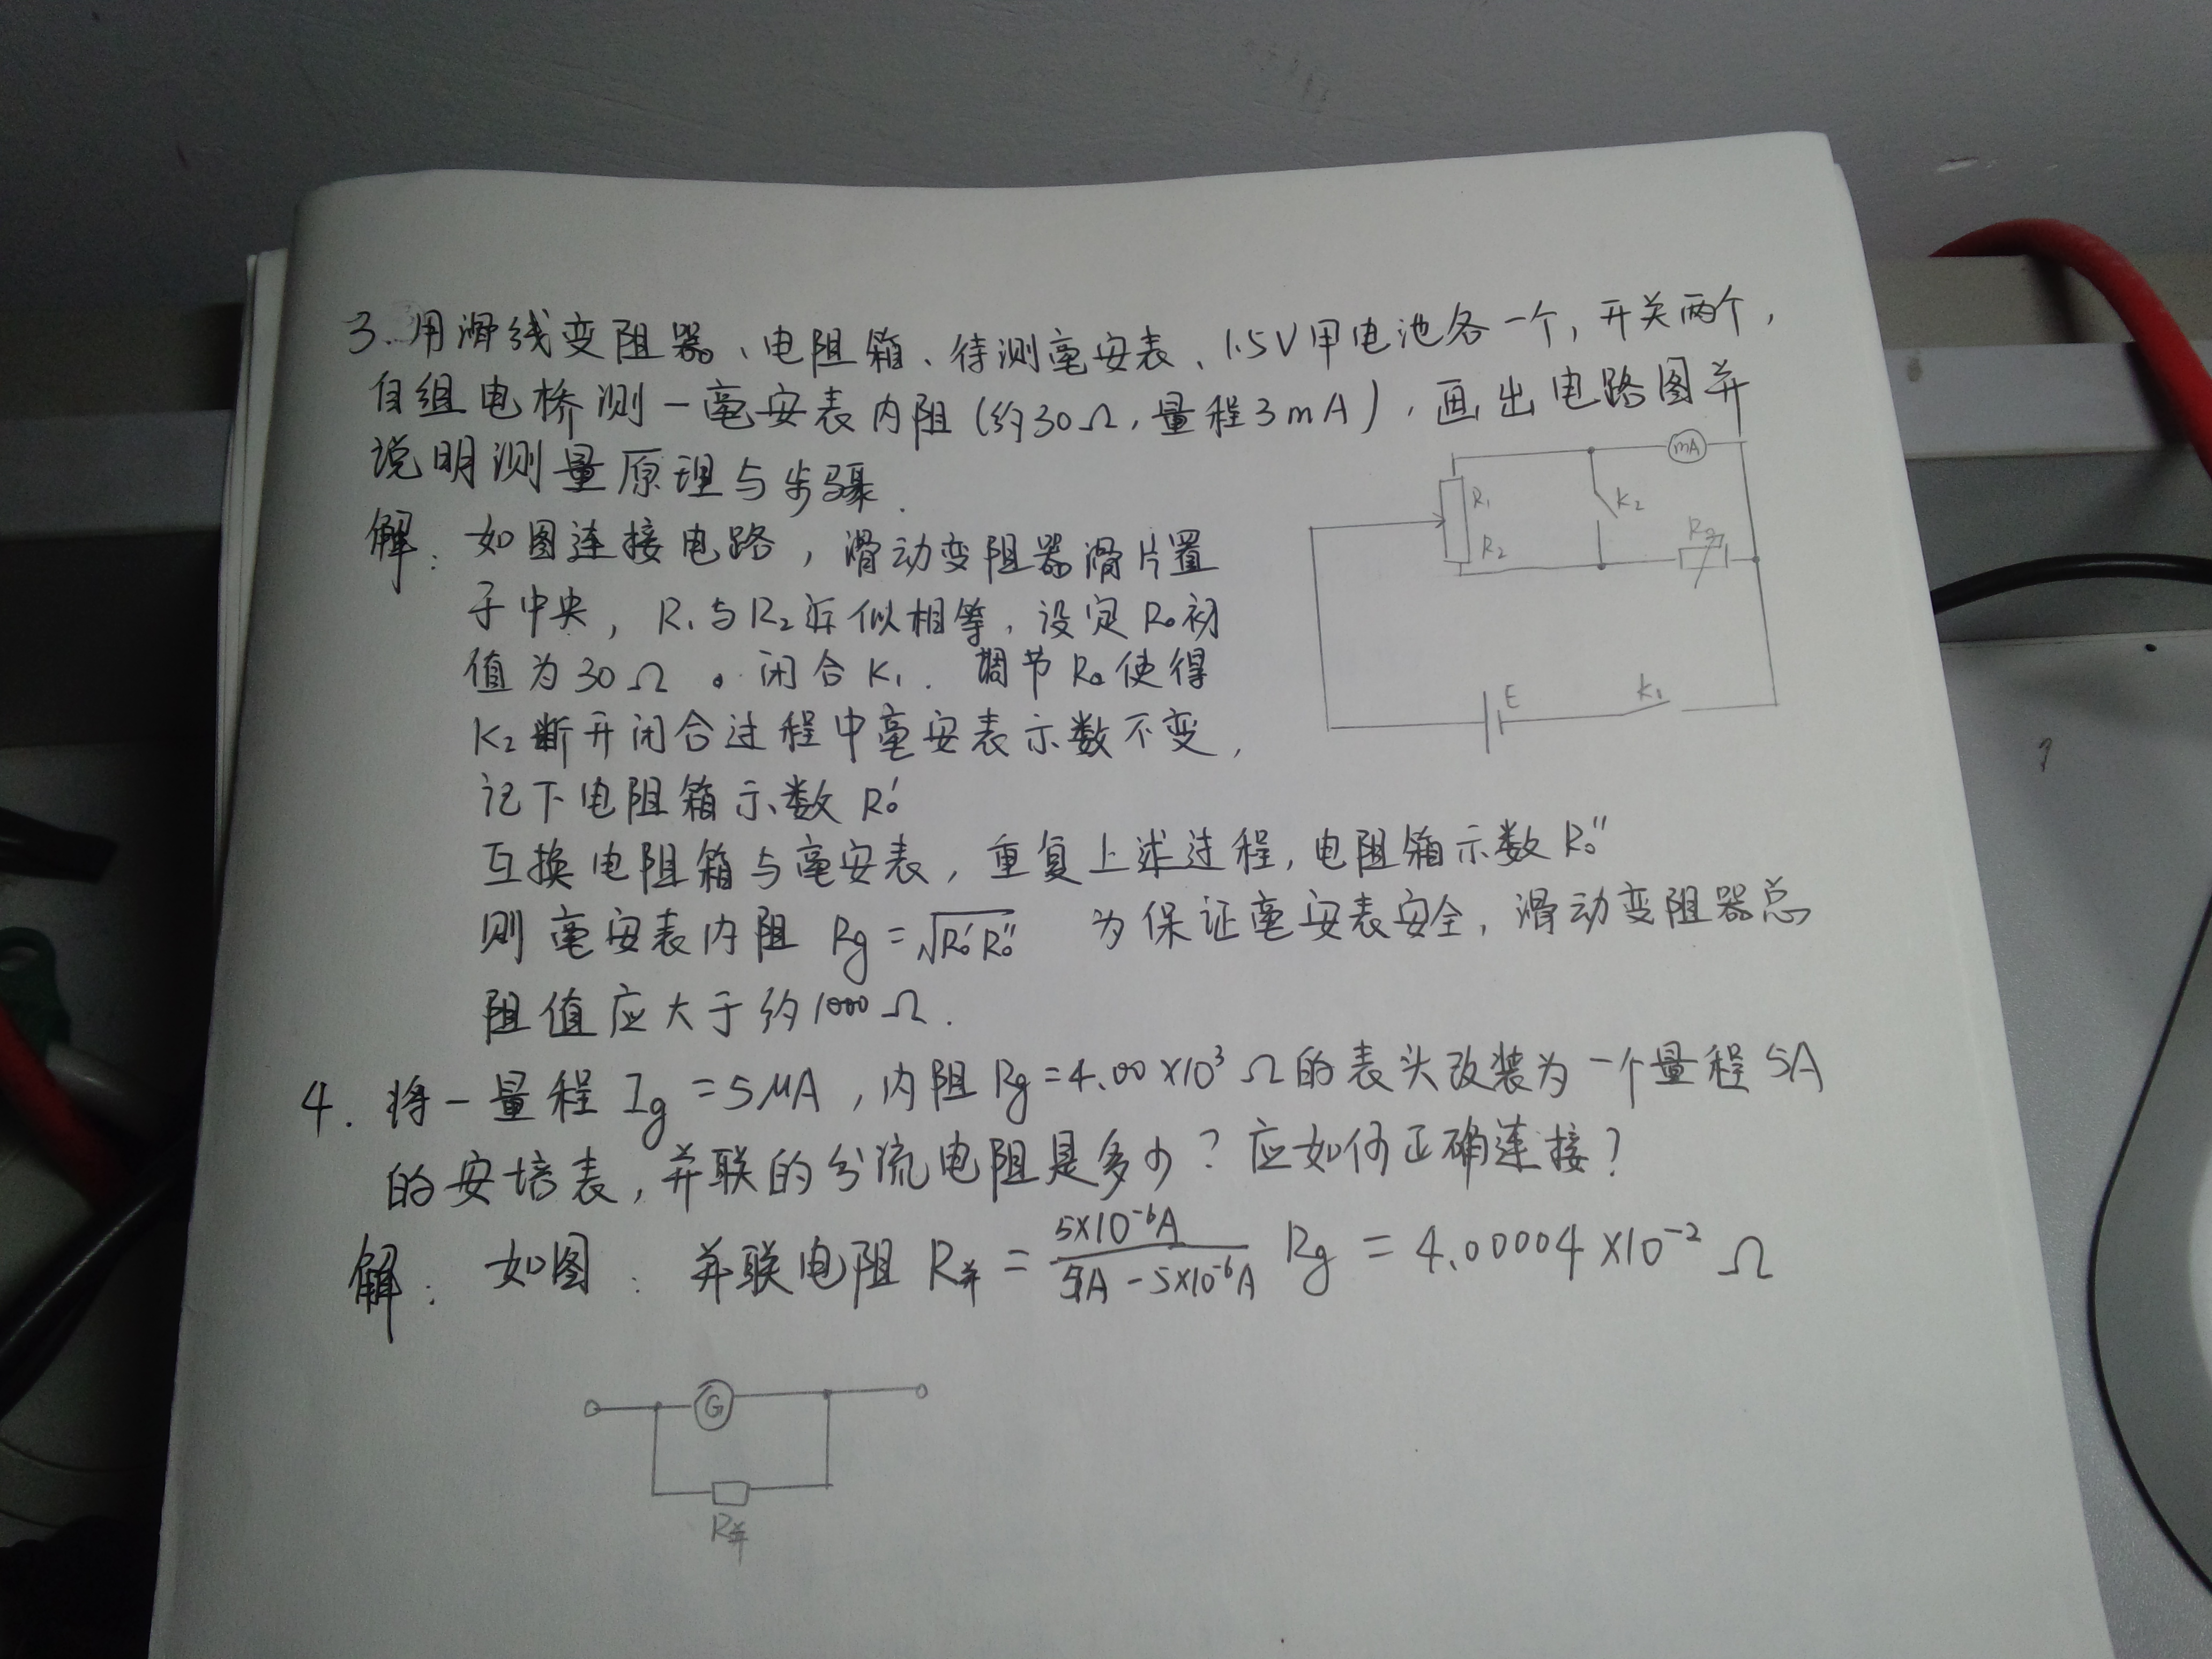 3. 用滑线变阻器、电阻箱、待测毫安表、1.5V甲电池各一个, 开关两个,
自组电桥测一毫安表内阻(约30Ω, 量程3mA), 画出电路图并
说明测量原理与步骤.
mA
R₁
K₂
R₂
R₀
E
K₁
解: 如图连接电路, 滑动变阻器滑片置
于中央, R₁与R₂近似相等, 设定R₀初
值为30Ω。闭合K₁. 调节R₀使得
K₂断开闭合过程中毫安表示数不变,
记下电阻箱示数 R₀′
互换电阻箱与毫安表, 重复上述过程, 电阻箱示数R₀″
则毫安表内阻 Rg = √R₀′R₀″ 为保证毫安表安全, 滑动变阻器总
阻值应大于约1000Ω.
4. 将一量程 Ig = 5μA, 内阻Rg = 4.00×10³ Ω的表头改装为一个量程5A
的安培表, 并联的分流电阻是多少? 应如何正确连接?
解: 如图: 并联电阻 R并 = 5×10⁻⁶A / (5A − 5×10⁻⁶A) Rg = 4.00004×10⁻² Ω
G
R并